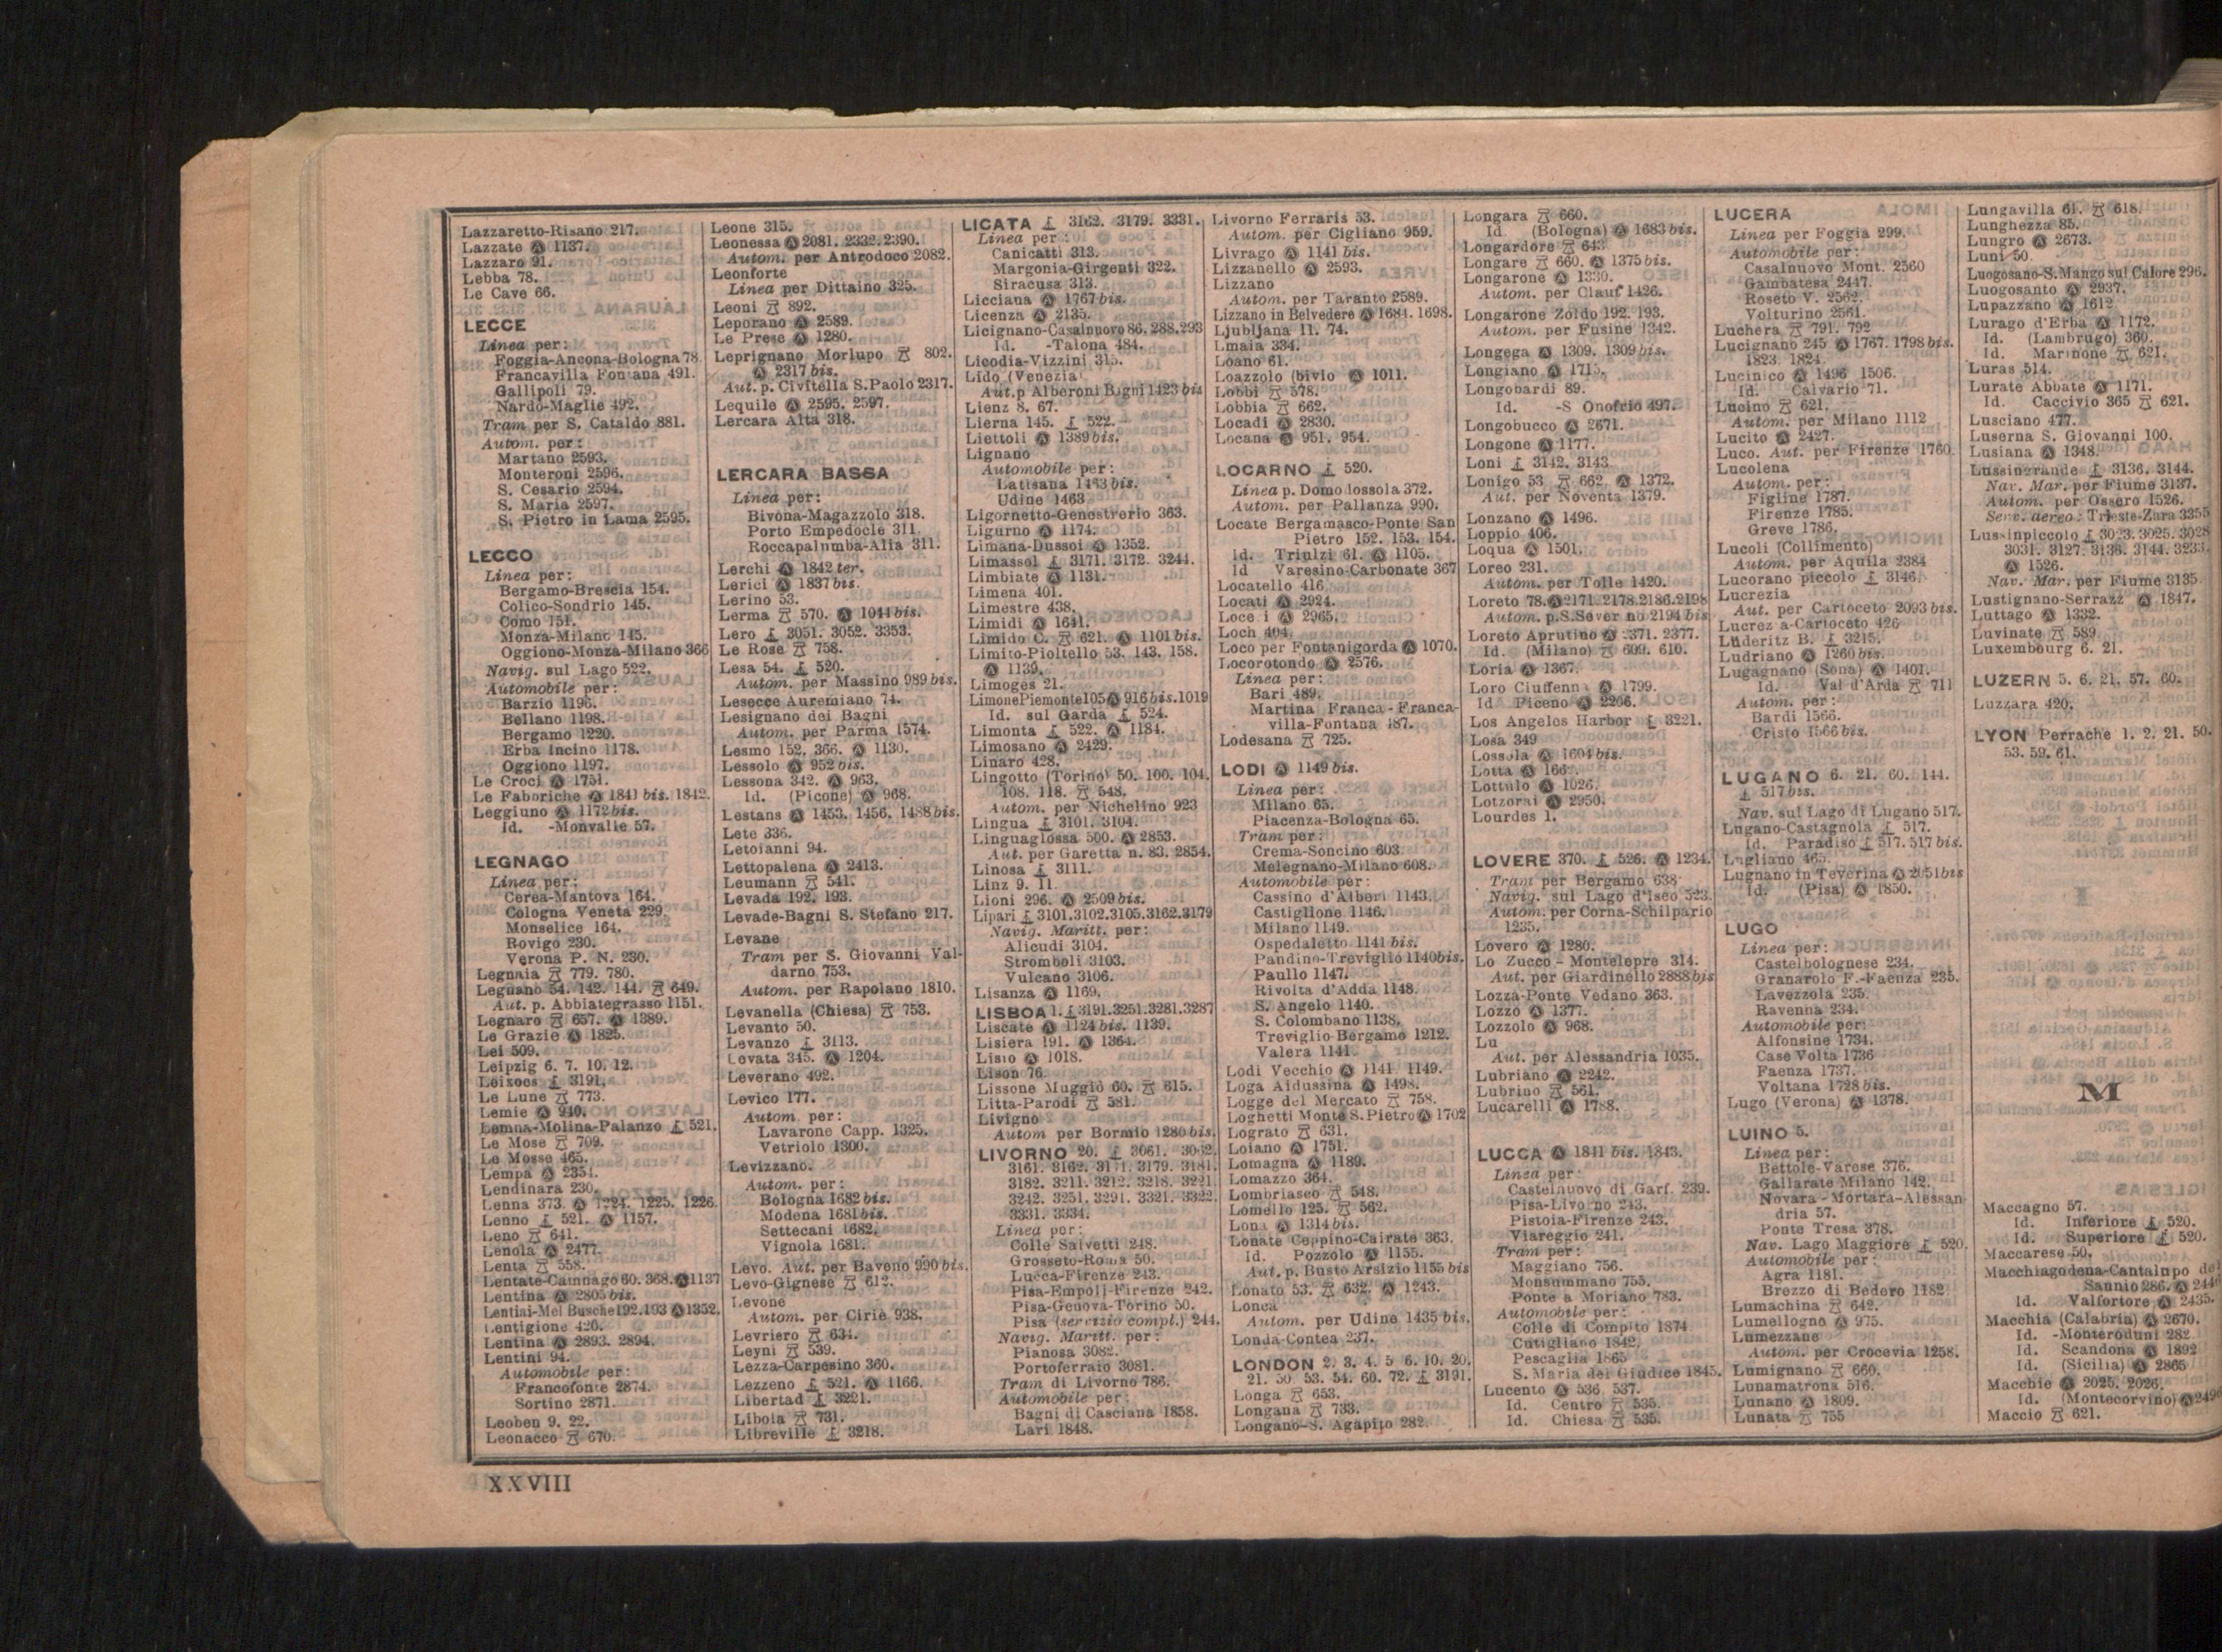 Lazzaretto-Risano 217.
Lazzate Ⓐ 1137.
Lazzaro 91.
Lebba 78.
Le Cave 66.
LECCE
Linea per:
Foggia-Ancona-Bologna 78.
Francavilla Fontana 491.
Gallipoli 79.
Nardò-Maglie 492.
Tram per S. Cataldo 881.
Autom. per:
Martano 2593.
Monteroni 2596.
S. Cesario 2594.
S. Maria 2597.
S. Pietro in Lama 2595.
LECCO
Linea per:
Bergamo-Brescia 154.
Colico-Sondrio 145.
Como 151.
Monza-Milano 145.
Oggiono-Monza-Milano 366
Navig. sul Lago 522.
Automobile per:
Barzio 1196.
Bellano 1198.
Bergamo 1220.
Erba Incino 1178.
Oggiono 1197.
Le Croci Ⓐ 1751.
Le Faboriche Ⓐ 1841 bis. 1842.
Leggiuno Ⓐ 1172 bis.
Id. -Monvalle 57.
LEGNAGO
Linea per:
Cerea-Mantova 164.
Cologna Veneta 229.
Monselice 164.
Rovigo 230.
Verona P. N. 230.
Legnaia 779. 780.
Legnano 54. 142. 144. 649.
Aut. p. Abbiategrasso 1151.
Legnaro 657. Ⓐ 1389.
Le Grazie Ⓐ 1825.
Lei 509.
Leipzig 6. 7. 10. 12.
Leixoes 3191.
Le Lune 773.
Lemie Ⓐ 940.
Lemna-Molina-Palanzo 521.
Le Mose 709.
Le Mosse 465.
Lempa Ⓐ 2354.
Lendinara 230.
Lenna 373. Ⓐ 1224. 1225. 1226.
Lenno 521. Ⓐ 1157.
Leno 641.
Lenola Ⓐ 2477.
Lenta 558.
Lentate-Camnago 60. 368. Ⓐ 1137
Lentina Ⓐ 2805 bis.
Lentiai-Mel Busche 192. 193 Ⓐ 1352.
Lentigione 420.
Lentina Ⓐ 2893. 2894.
Lentini 94.
Automobile per:
Francofonte 2874.
Sortino 2871.
Leoben 9. 22.
Leonacco 670.
Leone 315.
Leonessa Ⓐ 2081. 2332. 2390.
Autom. per Antrodoco 2082.
Leonforte
Linea per Dittaino 325.
Leoni 892.
Leporano Ⓐ 2589.
Le Prese Ⓐ 1280.
Leprignano Morlupo 802.
Ⓐ 2317 bis.
Aut. p. Civitella S. Paolo 2317.
Lequile Ⓐ 2595. 2597.
Lercara Alta 318.
LERCARA BASSA
Linea per:
Bivona-Magazzolo 318.
Porto Empedocle 311.
Roccapalumba-Alia 311.
Lerchi Ⓐ 1842 ter.
Lerici Ⓐ 1837 bis.
Lerino 53.
Lerma 570. Ⓐ 1044 bis.
Lero 3051. 3052. 3353.
Le Rose 758.
Lesa 54. 520.
Autom. per Massino 989 bis.
Lesecce Auremiano 74.
Lesignano dei Bagni
Autom. per Parma 1574.
Lesmo 152. 366. Ⓐ 1130.
Lessolo Ⓐ 952 bis.
Lessona 342. Ⓐ 963.
Id. (Picone) Ⓐ 968.
Lestans Ⓐ 1453. 1456. 1488 bis.
Lete 336.
Letoianni 94.
Lettopalena Ⓐ 2413.
Leumann 541.
Levada 192. 193.
Levade-Bagni S. Stefano 217.
Levane
Tram per S. Giovanni Val-
darno 753.
Autom. per Rapolano 1810.
Levanella (Chiesa) 753.
Levanto 50.
Levanzo 3113.
Levata 345. Ⓐ 1204.
Leverano 492.
Levico 177.
Autom. per:
Lavarone Capp. 1325.
Vetriolo 1300.
Levizzano.
Autom. per:
Bologna 1682 bis.
Modena 1681 bis.
Settecani 1682.
Vignola 1681.
Levo. Aut. per Baveno 990 bis.
Levo-Gignese 612.
Levone
Autom. per Ciriè 938.
Levriero 634.
Leyni 539.
Lezza-Carpesino 360.
Lezzeno 521. Ⓐ 1166.
Libertad 3221.
Libola 731.
Libreville 3218.
LICATA 3162. 3179. 3331.
Linea per:
Canicatti 313.
Margonia-Girgenti 322.
Siracusa 313.
Licciana Ⓐ 1767 bis.
Licenza Ⓐ 2135.
Licignano-Casalnuovo 86. 288. 293
Id. -Talona 484.
Licodia-Vizzini 315.
Lido (Venezia)
Aut. p Alberoni Bagni 1423 bis
Lienz 8. 67.
Lierna 145. 522.
Liettoli Ⓐ 1389 bis.
Lignano
Automobile per:
Latisana 1463 bis.
Udine 1463
Ligornetto-Genestrerio 363.
Ligurno Ⓐ 1174.
Limana-Dussoi Ⓐ 1352.
Limassol 3171. 3172. 3244.
Limbiate Ⓐ 1131.
Limena 401.
Limestre 438.
Limidi Ⓐ 1641.
Limido C. 621. Ⓐ 1101 bis.
Limito-Pioltello 53. 143. 158.
Ⓐ 1139.
Limoges 21.
Limone Piemonte 105 Ⓐ 916 bis. 1019
Id. sul Garda 524.
Limonta 522. Ⓐ 1184.
Limosano Ⓐ 2429.
Linaro 428.
Lingotto (Torino) 50. 100. 104.
108. 118. 548.
Autom. per Nichelino 923
Lingua 3101. 3104.
Linguaglossa 500. Ⓐ 2853.
Aut. per Garetta n. 83. 2854.
Linosa 3111.
Linz 9. 11.
Lioni 296. Ⓐ 2509 bis.
Lipari 3101. 3102. 3105. 3162. 3179
Navig. Maritt. per:
Alicudi 3104.
Stromboli 3103.
Vulcano 3106.
Lisanza Ⓐ 1169.
LISBOA 1. 3191. 3251. 3281. 3287
Liscate Ⓐ 1124 bis. 1139.
Lisiera 191. Ⓐ 1364.
Lisio Ⓐ 1018.
Lison 76.
Lissone Muggiò 60. 615.
Litta-Parodi 581.
Livigno
Autom per Bormio 1280 bis.
LIVORNO 20. 3061. 3062.
3161. 3162. 3171. 3179. 3181.
3182. 3211. 3212. 3218. 3221.
3242. 3251. 3291. 3321. 3322.
3331. 3334.
Linea per:
Colle Salvetti 248.
Grosseto-Roma 50.
Lucca-Firenze 243.
Pisa-Empoli-Firenze 242.
Pisa-Genova-Torino 50.
Pisa (servizio compl.) 244.
Navig. Maritt. per:
Pianosa 3082.
Portoferraio 3081.
Tram di Livorno 786.
Automobile per:
Bagni di Casciana 1858.
Lari 1848.
Livorno Ferraris 53.
Autom. per Cigliano 959.
Livrago Ⓐ 1141 bis.
Lizzanello Ⓐ 2593.
Lizzano
Autom. per Taranto 2589.
Lizzano in Belvedere Ⓐ 1684. 1698.
Ljubljana 11. 74.
Lmaia 334.
Loano 61.
Loazzolo (bivio Ⓐ 1011.
Lobbi 578.
Lobbia 662.
Locadi Ⓐ 2830.
Locana Ⓐ 951. 954.
LOCARNO 520.
Linea p. Domodossola 372.
Autom. per Pallanza 990.
Locate Bergamasco-Ponte San
Pietro 152. 153. 154.
Id. Triulzi 61. Ⓐ 1105.
Id Varesino-Carbonate 367
Locatello 416
Locati Ⓐ 2924.
Loce i Ⓐ 2965.
Loch 404.
Loco per Fontanigorda Ⓐ 1070.
Locorotondo Ⓐ 2576.
Linea per:
Bari 489.
Martina Franca - Franca-
villa-Fontana 487.
Lodesana 725.
LODI Ⓐ 1149 bis.
Linea per:
Milano 65.
Piacenza-Bologna 65.
Tram per:
Crema-Soncino 603.
Melegnano-Milano 608.
Automobile per:
Cassino d'Alberi 1143.
Castiglione 1146.
Milano 1149.
Ospedaletto 1141 bis.
Pandino-Treviglio 1140 bis.
Paullo 1147.
Rivolta d'Adda 1148.
S. Angelo 1140.
S. Colombano 1138.
Treviglio-Bergamo 1212.
Valera 1141.
Lodi Vecchio Ⓐ 1141 1149.
Loga Aidussina Ⓐ 1498.
Logge del Mercato 758.
Loghetti Monte S. Pietro Ⓐ 1702
Lograto 631.
Loiano Ⓐ 1751.
Lomagna Ⓐ 1189.
Lomazzo 364.
Lombriasco 548.
Lomello 125. 562.
Lona Ⓐ 1314 bis.
Lonate Ceppino-Cairate 363.
Id. Pozzolo Ⓐ 1155.
Aut. p. Busto Arsizio 1155 bis
Lonato 53. 632. Ⓐ 1243.
Lonca
Autom. per Udine 1435 bis.
Londa-Contea 237.
LONDON 2. 3. 4. 5 6. 10. 20.
21. 50. 53. 54. 60. 72. 3191.
Longa 653.
Longana 733.
Longano-S. Agapito 282.
Longara 660.
Id. (Bologna) Ⓐ 1683 bis.
Longardore 643
Longare 660. Ⓐ 1375 bis.
Longarone Ⓐ 1330.
Autom. per Claut 1426.
Longarone Zoldo 192. 193.
Autom. per Fusine 1342.
Longega Ⓐ 1309. 1309 bis.
Longiano Ⓐ
Longobardi 89.
Id. -S Onofrio 497.
Longobucco Ⓐ 2671.
Longone Ⓐ 1177.
Loni 3142. 3143
Lonigo 53 662. Ⓐ 1372.
Aut. per Noventa 1379.
Lonzano Ⓐ 1496.
Loppio 406.
Loqua Ⓐ 1501.
Loreo 231.
Autom. per Tolle 1420.
Loreto 78. Ⓐ 2171. 2178. 2186. 2198
Autom. p. S. Sever no 2194 bis
Loreto Aprutino Ⓐ 2371. 2377.
Id. (Milano) 609. 610.
Loria Ⓐ 1367.
Loro Ciuffenna Ⓐ 1799.
Id Piceno Ⓐ 2206.
Los Angeles Harbor 3221.
Losa 349
Lossola Ⓐ 1604 bis.
Lotta Ⓐ
Lottulo Ⓐ 1026.
Lotzorai Ⓐ 2950.
Lourdes 1.
LOVERE 370. 526. Ⓐ 1234.
Tram per Bergamo 638
Navig. sul Lago d'Iseo 523.
Autom. per Corna-Schilpario
1235.
Lovero Ⓐ 1280.
Lo Zucco - Montelepre 314.
Aut. per Giardinello 2888 bis
Lozza-Ponte Vedano 363.
Lozzo Ⓐ 1377.
Lozzolo Ⓐ 968.
Lu
Aut. per Alessandria 1035.
Lubriano Ⓐ 2242.
Lubrino 561.
Lucarelli Ⓐ 1788.
LUCCA Ⓐ 1841 bis. 1843.
Linea per:
Castelnuovo di Garf. 239.
Pisa-Livo no 243.
Pistoia-Firenze 243.
Viareggio 241.
Tram per:
Maggiano 756.
Monsummano 755.
Ponte a Moriano 783.
Automobile per:
Colle di Compito 1874
Cutigliano 1842.
Pescaglia 1865
S. Maria dei Giudice 1845.
Lucento Ⓐ 536. 537.
Id. Centro 535.
Id. Chiesa 535.
LUCERA
Linea per Foggia 299.
Automobile per:
Casalnuovo Mont. 2560
Gambatesa 2447.
Roseto V. 2562.
Volturino 2561.
Luchera 791. 792
Lucignano 245 Ⓐ 1767. 1798 bis.
1823. 1824.
Lucinico Ⓐ 1496 1506.
Id. Calvario 71.
Lucino 621.
Autom. per Milano 1112
Lucito Ⓐ 2427.
Luco. Aut. per Firenze 1760.
Lucolena
Autom. per:
Figline 1787.
Firenze 1785.
Greve 1786.
Lucoli (Collimento)
Autom. per Aquila 2384
Lucorano piccolo 3146.
Lucrezia
Aut. per Cartoceto 2093 bis.
Lucrez a-Cartoceto 426
Lüderitz B. 3215.
Ludriano Ⓐ 1260 bis.
Lugagnano (Sona) Ⓐ 1401.
Id. Val d'Arda 711
Autom. per:
Bardi 1566.
Cristo 1566 bis.
LUGANO 6. 21. 60. 144.
517 bis.
Nav. sul Lago di Lugano 517.
Lugano-Castagnola 517.
Id. Paradiso 517. 517 bis.
Lugliano 465.
Lugnano in Teverina Ⓐ 2051 bis
Id. (Pisa) Ⓐ 1850.
LUGO
Linea per:
Castelbolognese 234.
Granarolo F.-Faenza 235.
Lavezzola 235.
Ravenna 234.
Automobile per:
Alfonsine 1734.
Case Volta 1736
Faenza 1737.
Voltana 1728 bis.
Lugo (Verona) Ⓐ 1378.
LUINO 5.
Linea per:
Bettole-Varese 376.
Gallarate Milano 142.
Novara - Mortara-Alessan
dria 57.
Ponte Tresa 378.
Nav. Lago Maggiore 520.
Automobile per:
Agra 1181.
Brezzo di Bedero 1182
Lumachina 642.
Lumellogno Ⓐ 975.
Lumezzane
Autom. per Crocevia 1258.
Lumignano 660.
Lunamatrona 516.
Lunano Ⓐ 1809.
Lunata 755
Lungavilla 61. 618.
Lunghezza 85.
Lungro Ⓐ 2673.
Luni 50.
Luogosano-S. Mango sul Calore 296.
Luogosanto Ⓐ 2937.
Lupazzano Ⓐ 1612
Lurago d'Erba Ⓐ 1172.
Id. (Lambrugo) 360.
Id. Marinone 621.
Luras 514.
Lurate Abbate Ⓐ 1171.
Id. Caccivio 365 621.
Lusciano 477.
Luserna S. Giovanni 100.
Lusiana Ⓐ 1348.
Lussingrande 3136. 3144.
Nav. Mar. per Fiume 3137.
Autom. per Ossero 1526.
Serv. aereo: Trieste-Zara 3355
Lussinpiccolo 3023. 3025. 3028
3031. 3127. 3136. 3144. 3233.
Ⓐ 1526.
Nav. Mar. per Fiume 3135.
Lustignano-Serrazz Ⓐ 1847.
Luttago Ⓐ 1332.
Luvinate 589
Luxembourg 6. 21.
LUZERN 5. 6. 21. 57. 60.
Luzzara 420.
LYON Perrache 1. 2. 21. 50.
53. 59. 61.
M
Maccagno 57.
Id. Inferiore 520.
Id. Superiore 520.
Maccarese 50.
Macchiagodena-Cantalupo del
Sannio 286. Ⓐ
Id. Valfortore Ⓐ 2435.
Macchia (Calabria) Ⓐ 2670.
Id. -Monteroduni 282
Id. Scandona Ⓐ 1892
Id. (Sicilia) Ⓐ 2865
Macchie Ⓐ 2025. 2026.
Id. (Montecorvino) Ⓐ
Maccio 621.
XXVIII